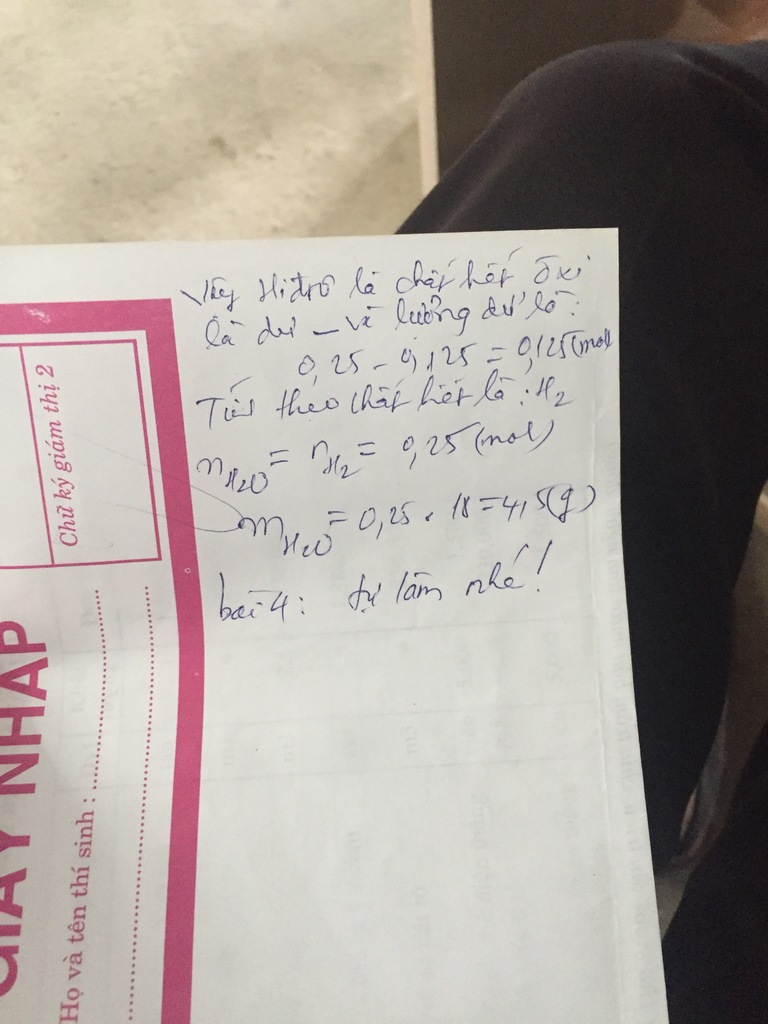 Vậy Hiđrô là chất hết ôxi
là dư – và lượng dư là:
0,25 - 0,125 = 0,125(mol
Tính theo chất hết là: H2
nH2O = nH2 = 0,25(mol)
mH2O = 0,25 . 18 = 4,5(g)
bài 4: tự làm nhé!
Chữ ký giám thị 2
GIẤY NHÁP
Họ và tên thí sinh :